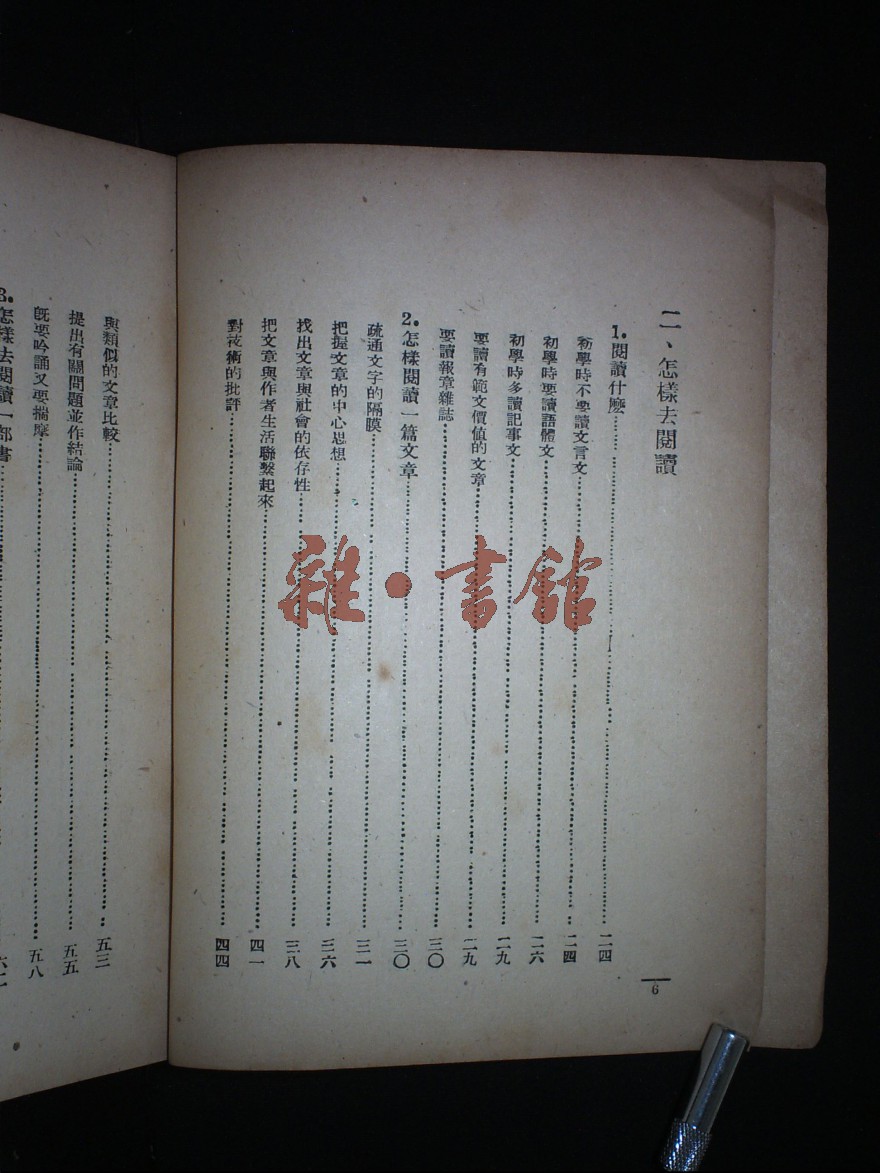 二、怎樣去閱讀
1.閱讀什麼……二四
初學時不要讀文言文……二四
初學時要讀語體文……二六
初學時多讀記事文……二九
要讀有範文價值的文章……二九
要讀報章雜誌……三〇
2.怎樣閱讀一篇文章……三〇
疏通文字的隔膜……三一
把握文章的中心思想……三六
找出文章與社會的依存性……三八
把文章與作者生活聯繫起來……四一
對技術的批評……四四
6
與類似的文章比較……五三
提出有關問題並作結論……五五
既要吟誦又要揣摩……五八
3.怎樣去閱讀一部書……六二
雜·書館